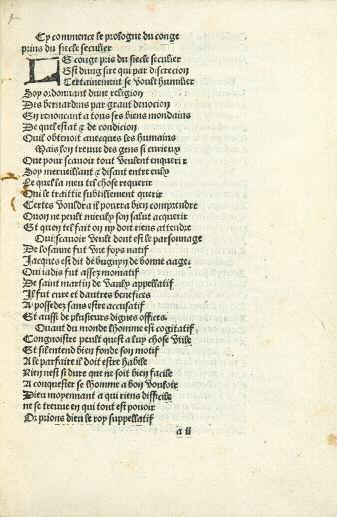 Cy commence le prologue du conge
prins du siecle seculier
LE conge pris du siecle seculier
Est dung sire qui par discrecion
Certainement se voult humilier
Soy ordonnant dune religion
Des bernardins par grant deuocion
En renoncant a tous ses biens mondains
De quel estat & de condicion
Quil obtenoit auecques les humains
Mais lon treuue des gens si curieux
Que pour scauoir tout veulent enquerir
Soy merueillant & disant entre eulx
Le quel la meu tel chose requerir
Qui se traittie subtillement querir
Certes vouldra il pourra bien comprendre
Quon ne peult mieulx son salut acquerir
Et quen tel fait on ny doit riens attendre
Qui scauoir veult dont est le parsonnage
De losanne fut vne foys natif
Jacques est dit de bugnyn de bonne aage
Qui iadis fut assez momatif
De saint martin de vaulx appellatif
Il fut cure et dautres benefices
A possedez sans estre accusatif
Et aussi de plusieurs dignes offices
Quant du monde lhomme est cogitatif
Congnoistre peult quest a luy chose vtile
Et silentend bien fonde son motif
A le parfaire il doit estre habile
Rien nest si dure que ne soit bien facile
A conquester se lhomme a bon vouloir
Dieu moyennant a qui riens difficile
ne se treuue en qui tout est pouoir
Or prions dieu le roy suppellatif
a ii